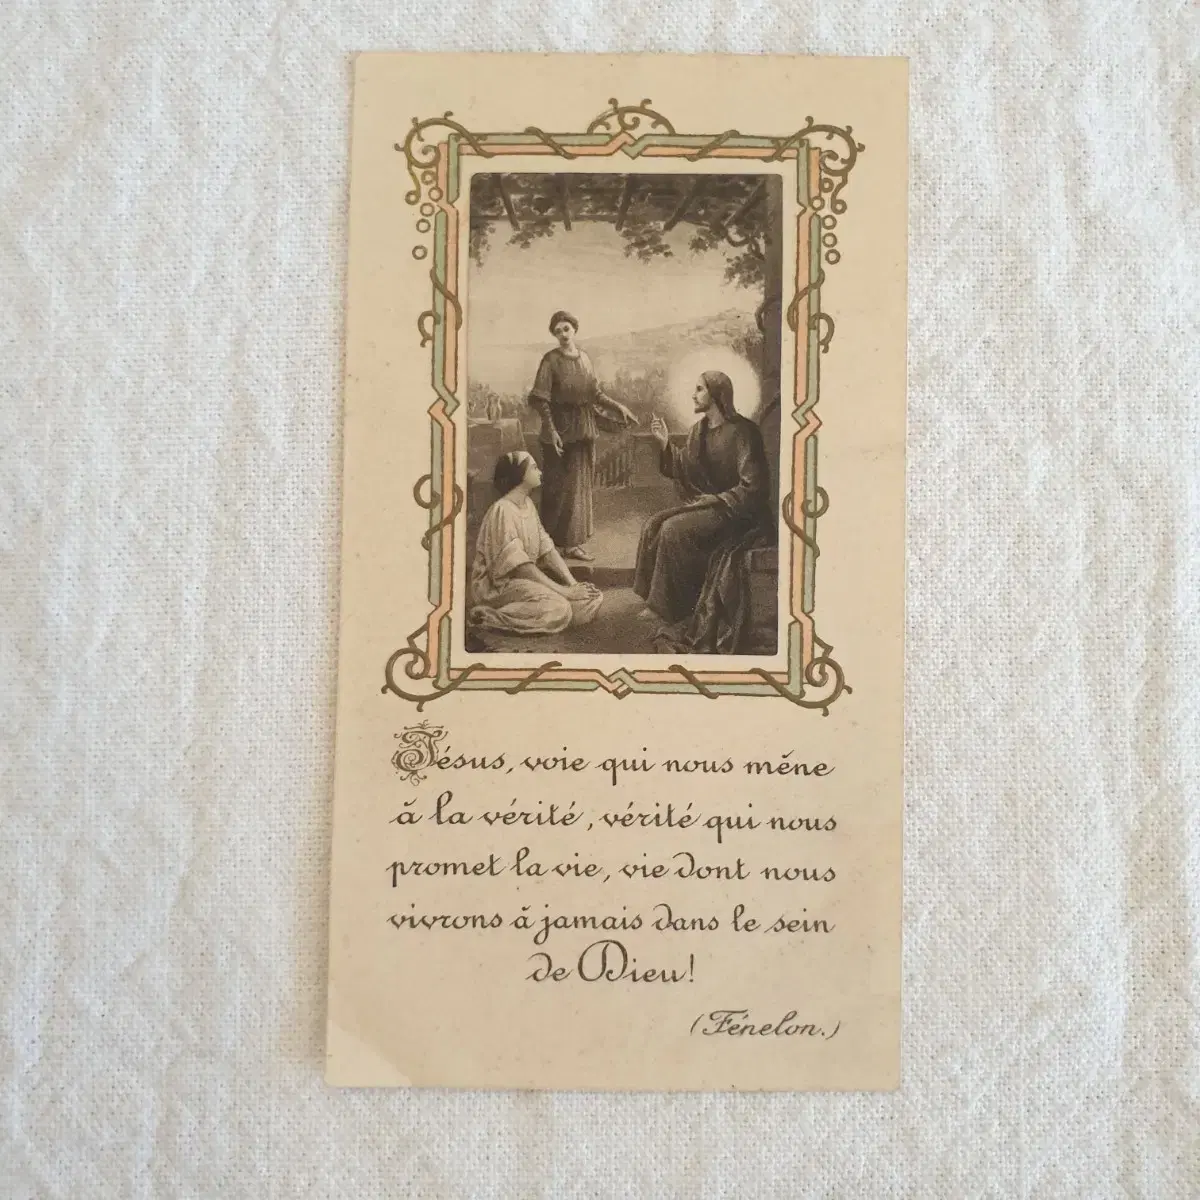 Jésus, voie qui nous mène
à la vérité, vérité qui nous
promet la vie, vie dont nous
vivrons à jamais dans le sein
de Dieu!
(Fénelon.)